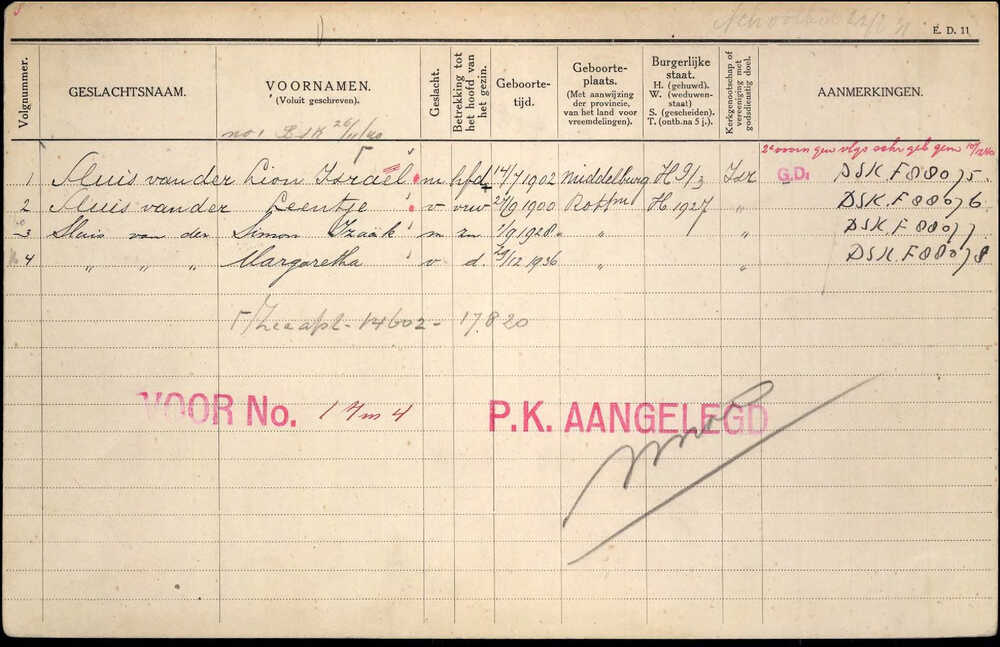 E. D. 11
Volgnummer.
GESLACHTSNAAM.
VOORNAMEN.
(Voluit geschreven).
Geslacht.
Betrekking tot het hoofd van het gezin.
Geboorte-
tijd.
Geboorte-
plaats.
(Met aanwijzing
der provincie,
van het land voor
vreemdelingen).
Burgerlijke
staat.
H. (gehuwd).
W. (weduwen-
staat)
S. (gescheiden).
T. (ontb. na 5 j.).
Kerkgenootschap of
vereeniging met
godsdienstig doel.
AANMERKINGEN.
2e voorn gew vlgs schr geb gem 10/12/40
1 Sluis van der Lion Israël m hfd 14/7 1902 Middelburg H 9/3 Isr G.D. DSK. F88075
2 Sluis van der Leentje v vrw 27/9 1900 Rottm H 1927 " DSK. F88076
3 Sluis van der Simon Izaak m zn 7/9 1928 " " DSK. F88077
4 " " " Margaretha v d. 29/12 1936 " " DSK. F88078
14602 - 17.8.20
VOOR No. 1 t/m 4 P.K. AANGELEGD